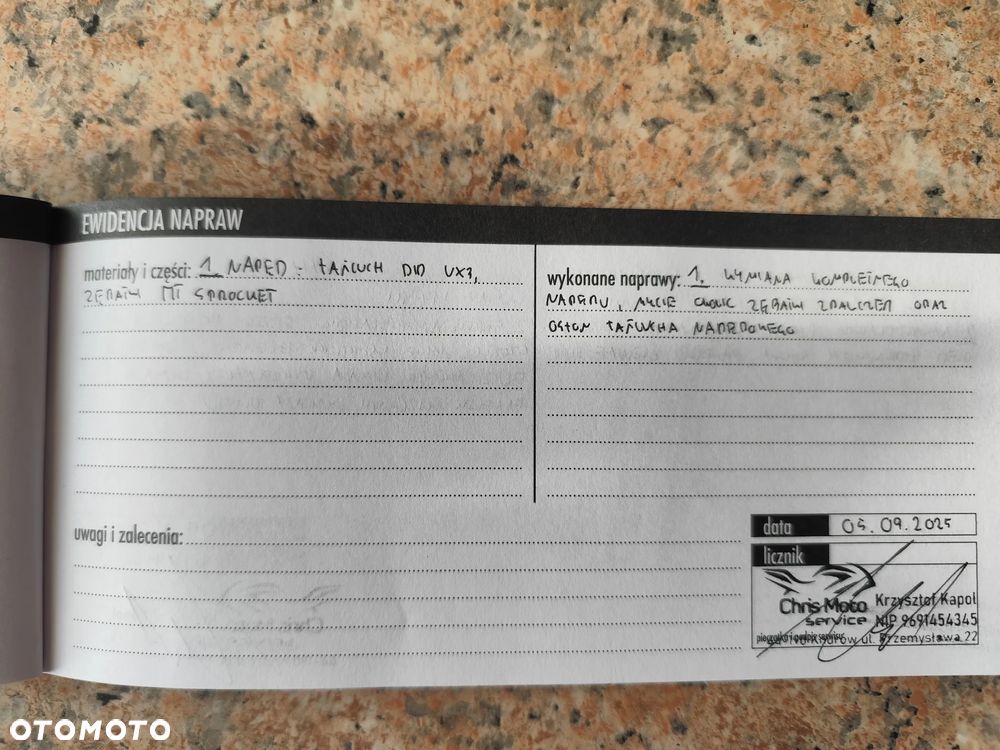 EWIDENCJA NAPRAW
materiały i części: 1 NAPĘD - ŁAŃCUCH DID VX3,
ZĘBATKI JT SPROCKET
wykonane naprawy: 1. WYMIANA KOMPLETNEGO
NAPĘDU, MYCIE OKOLIC ZĘBATKI ZDAWCZEJ ORAZ
OSŁON ŁAŃCUCHA NAPĘDOWEGO
uwagi i zalecenia:
data 05.09.2025
licznik
Chris Moto
service
Krzysztof Kapol
NIP 9691454345
ul. Przemysława 22
pieczątka i podpis serwisu
OTOMOTO